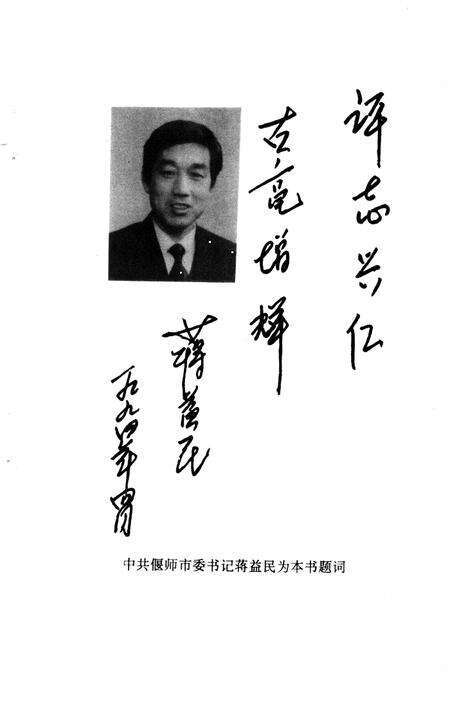 评志兴仁
古亳增辉
蒋益民
一九九四年四月
中共偃师市委书记蒋益民为本书题词